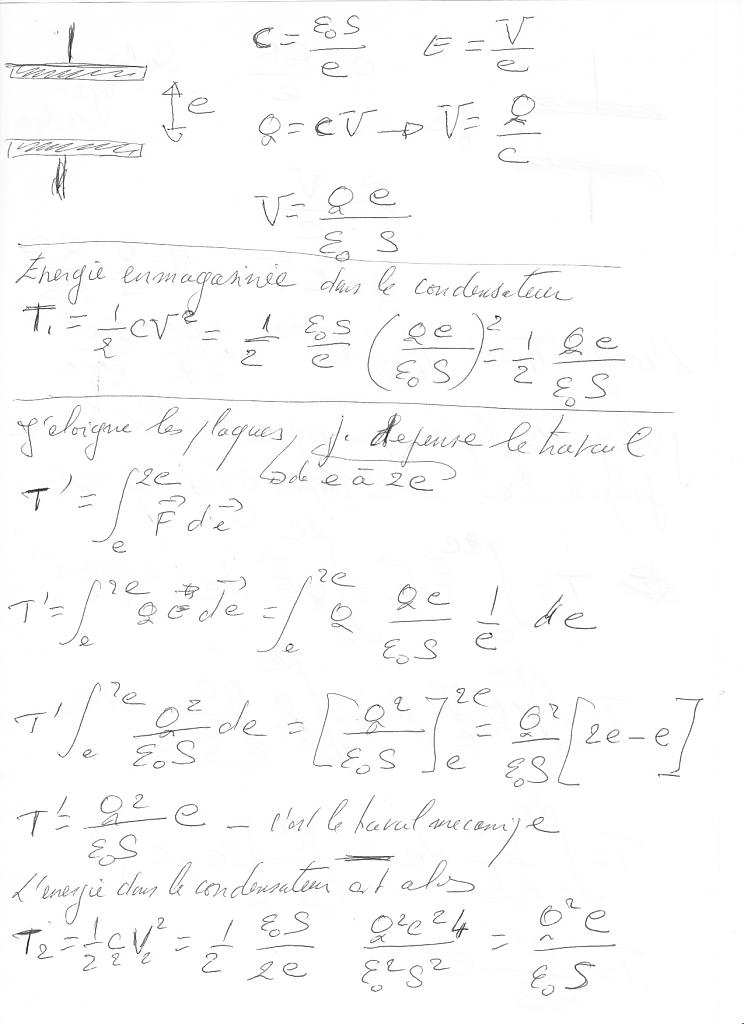 C = ε₀S/e E = V/e
e
Q = CV → V = Q/C
V = Qe/ε₀S
Energie enmagasinée dans le condensateur
T₁ = 1/2 CV² = 1/2 ε₀S/e (Qe/ε₀S)² = 1/2 Qe/ε₀S
J'eloigne les plaques, je depense le travail
→ de e à 2e
T' = ∫ₑ²ᵉ F⃗ de⃗
T' = ∫ₑ²ᵉ Q de⃗ = ∫ₑ²ᵉ Q Qe/ε₀S 1/e de
T' ∫ₑ²ᵉ Q²/ε₀S de = [Q²/ε₀S]ₑ²ᵉ = Q²/ε₀S [2e - e]
T' = Q²/ε₀S e - c'est le travail mecanique
L'energie dans le condensateur est alors
T₂ = 1/2 C₂V₂² = 1/2 ε₀S/2e Q²e²4/ε₀²S² = Q²e/ε₀S